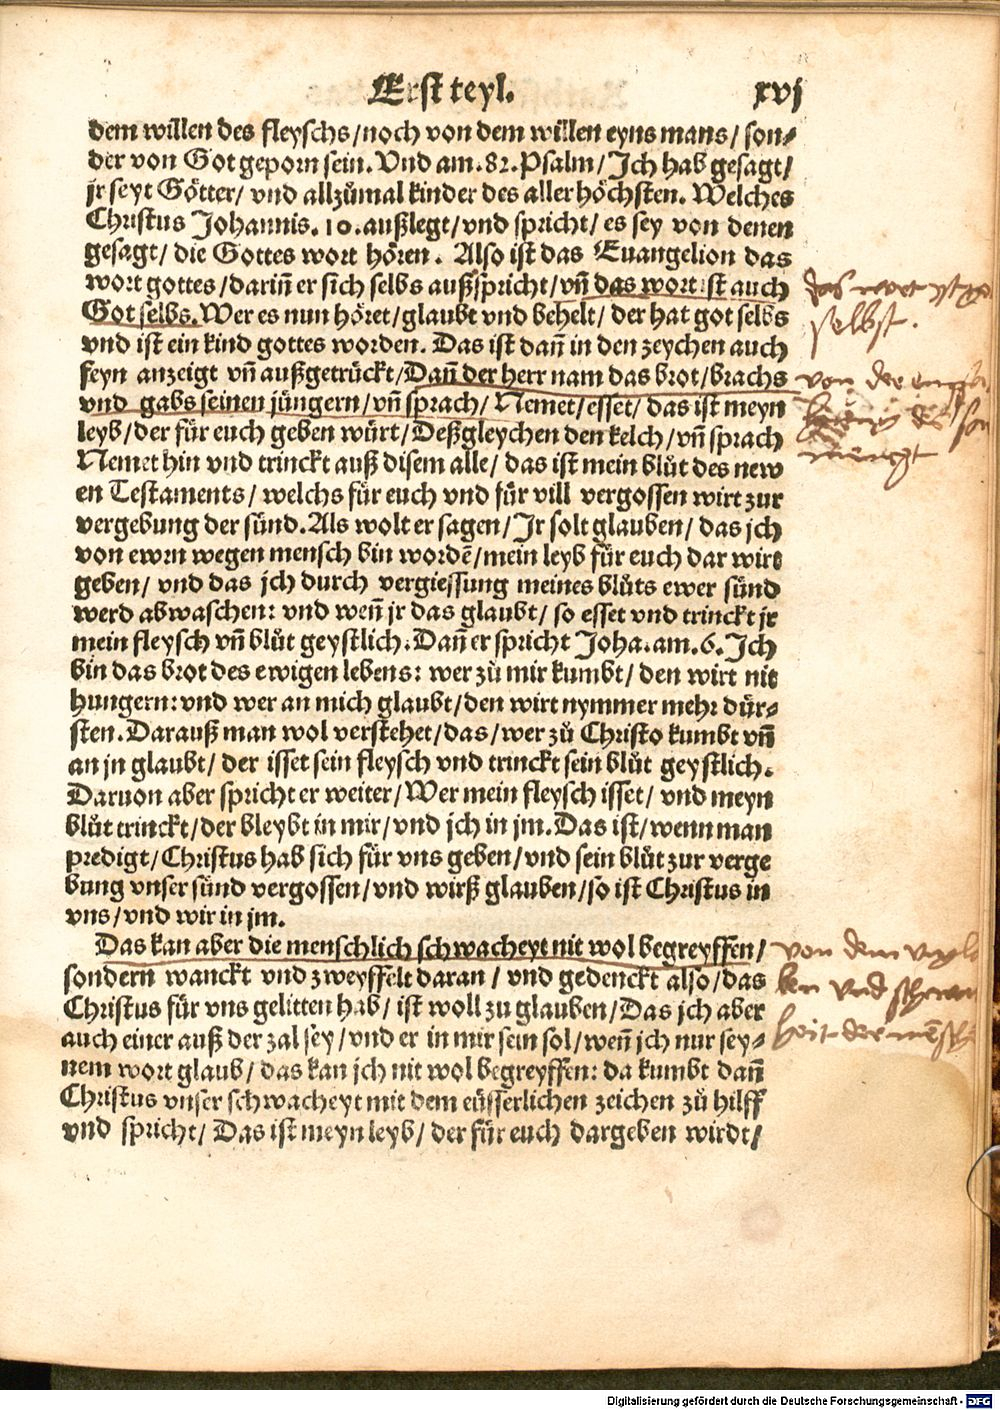 Erst teyl. xvj
dem willen des fleyschs/noch von dem willen eyns mans/ son⸗
der von Got geporn sein. Vnd am. 82. Psalm/ Jch hab gesagt/
jr seyt Götter/ vnd allzůmal kinder des aller höchsten. Welches
Christus Johannis. 10. außlegt/vnd spricht/ es sey von denen
gesagt/ die Gottes wort hören. Also ist das Euangelion das
wort gottes/darin̄ er sich selbs außspricht/vn̄ das wort ist auch
Got selbs. Wer es nun höret/glaubt vnd behelt/ der hat got selbs
vnd ist ein kind gottes worden. Das ist dan̄ in den zeychen auch
feyn anzeigt vn̄ außgetrückt/Dan̄ der herr nam das brot/brachs
vnd gabs seinen jüngern/vn̄ sprach/ Nemet/esset/ das ist meyn
leyb/der für euch geben würt/Deßgleychen den kelch/vn̄ sprach
Nemet hin vnd trinckt auß disem alle/ das ist mein blůt des new
en Testaments/ welchs für euch vnd für vill vergossen wirt zur
vergebung der sünd. Als wolt er sagen/Jr solt glauben/ das jch
von ewrn wegen mensch bin wordē/mein leyb für euch dar wirt
geben/ vnd das jch durch vergiessung meines blůts ewer sünd
werd abwaschen: vnd wen̄ jr das glaubt/ so esset vnd trinckt jr
mein fleysch vn̄ blůt geystlich. Dan̄ er spricht Joha. am. 6. Jch
bin das brot des ewigen lebens: wer zů mir kumbt/ den wirt nit
hungern: vnd wer an mich glaubt/den wirt nymmer mehr dür⸗
sten. Darauß man wol verstehet/das/wer zů Christo kumbt vn̄
an jn glaubt/ der isset sein fleysch vnd trinckt sein blůt geystlich.
Daruon aber spricht er weiter/Wer mein fleysch isset/ vnd meyn
blůt trinckt/der bleybt in mir/vnd jch in jm. Das ist/wenn man
predigt/Christus hab sich für vns geben/vnd sein blůt zur verge
bung vnser sünd vergossen/vnd wirß glauben/so ist Christus in
vns/vnd wir in jm.
Das kan aber die menschlich schwacheyt nit wol begreyffen/
sondern wanckt vnd zweyffelt daran/ vnd gedenckt also/das
Christus für vns gelitten hab/ ist woll zu glauben/Das jch aber
auch einer auß der zal sey/vnd er in mir sein sol/wen̄ jch nur sey⸗
nem wort glaub/das kan jch nit wol begreyffen: da kumbt dan̄
Christus vnser schwacheyt mit dem eüsserlichen zeichen zů hilff
vnd spricht/ Das ist meyn leyb/ der für euch dargeben wirdt/
das wort yst
selbst.
von der
des
von dem vngla
ben vnd schwa
heit der
Digitalisierung gefördert durch die Deutsche Forschungsgemeinschaft - DFG